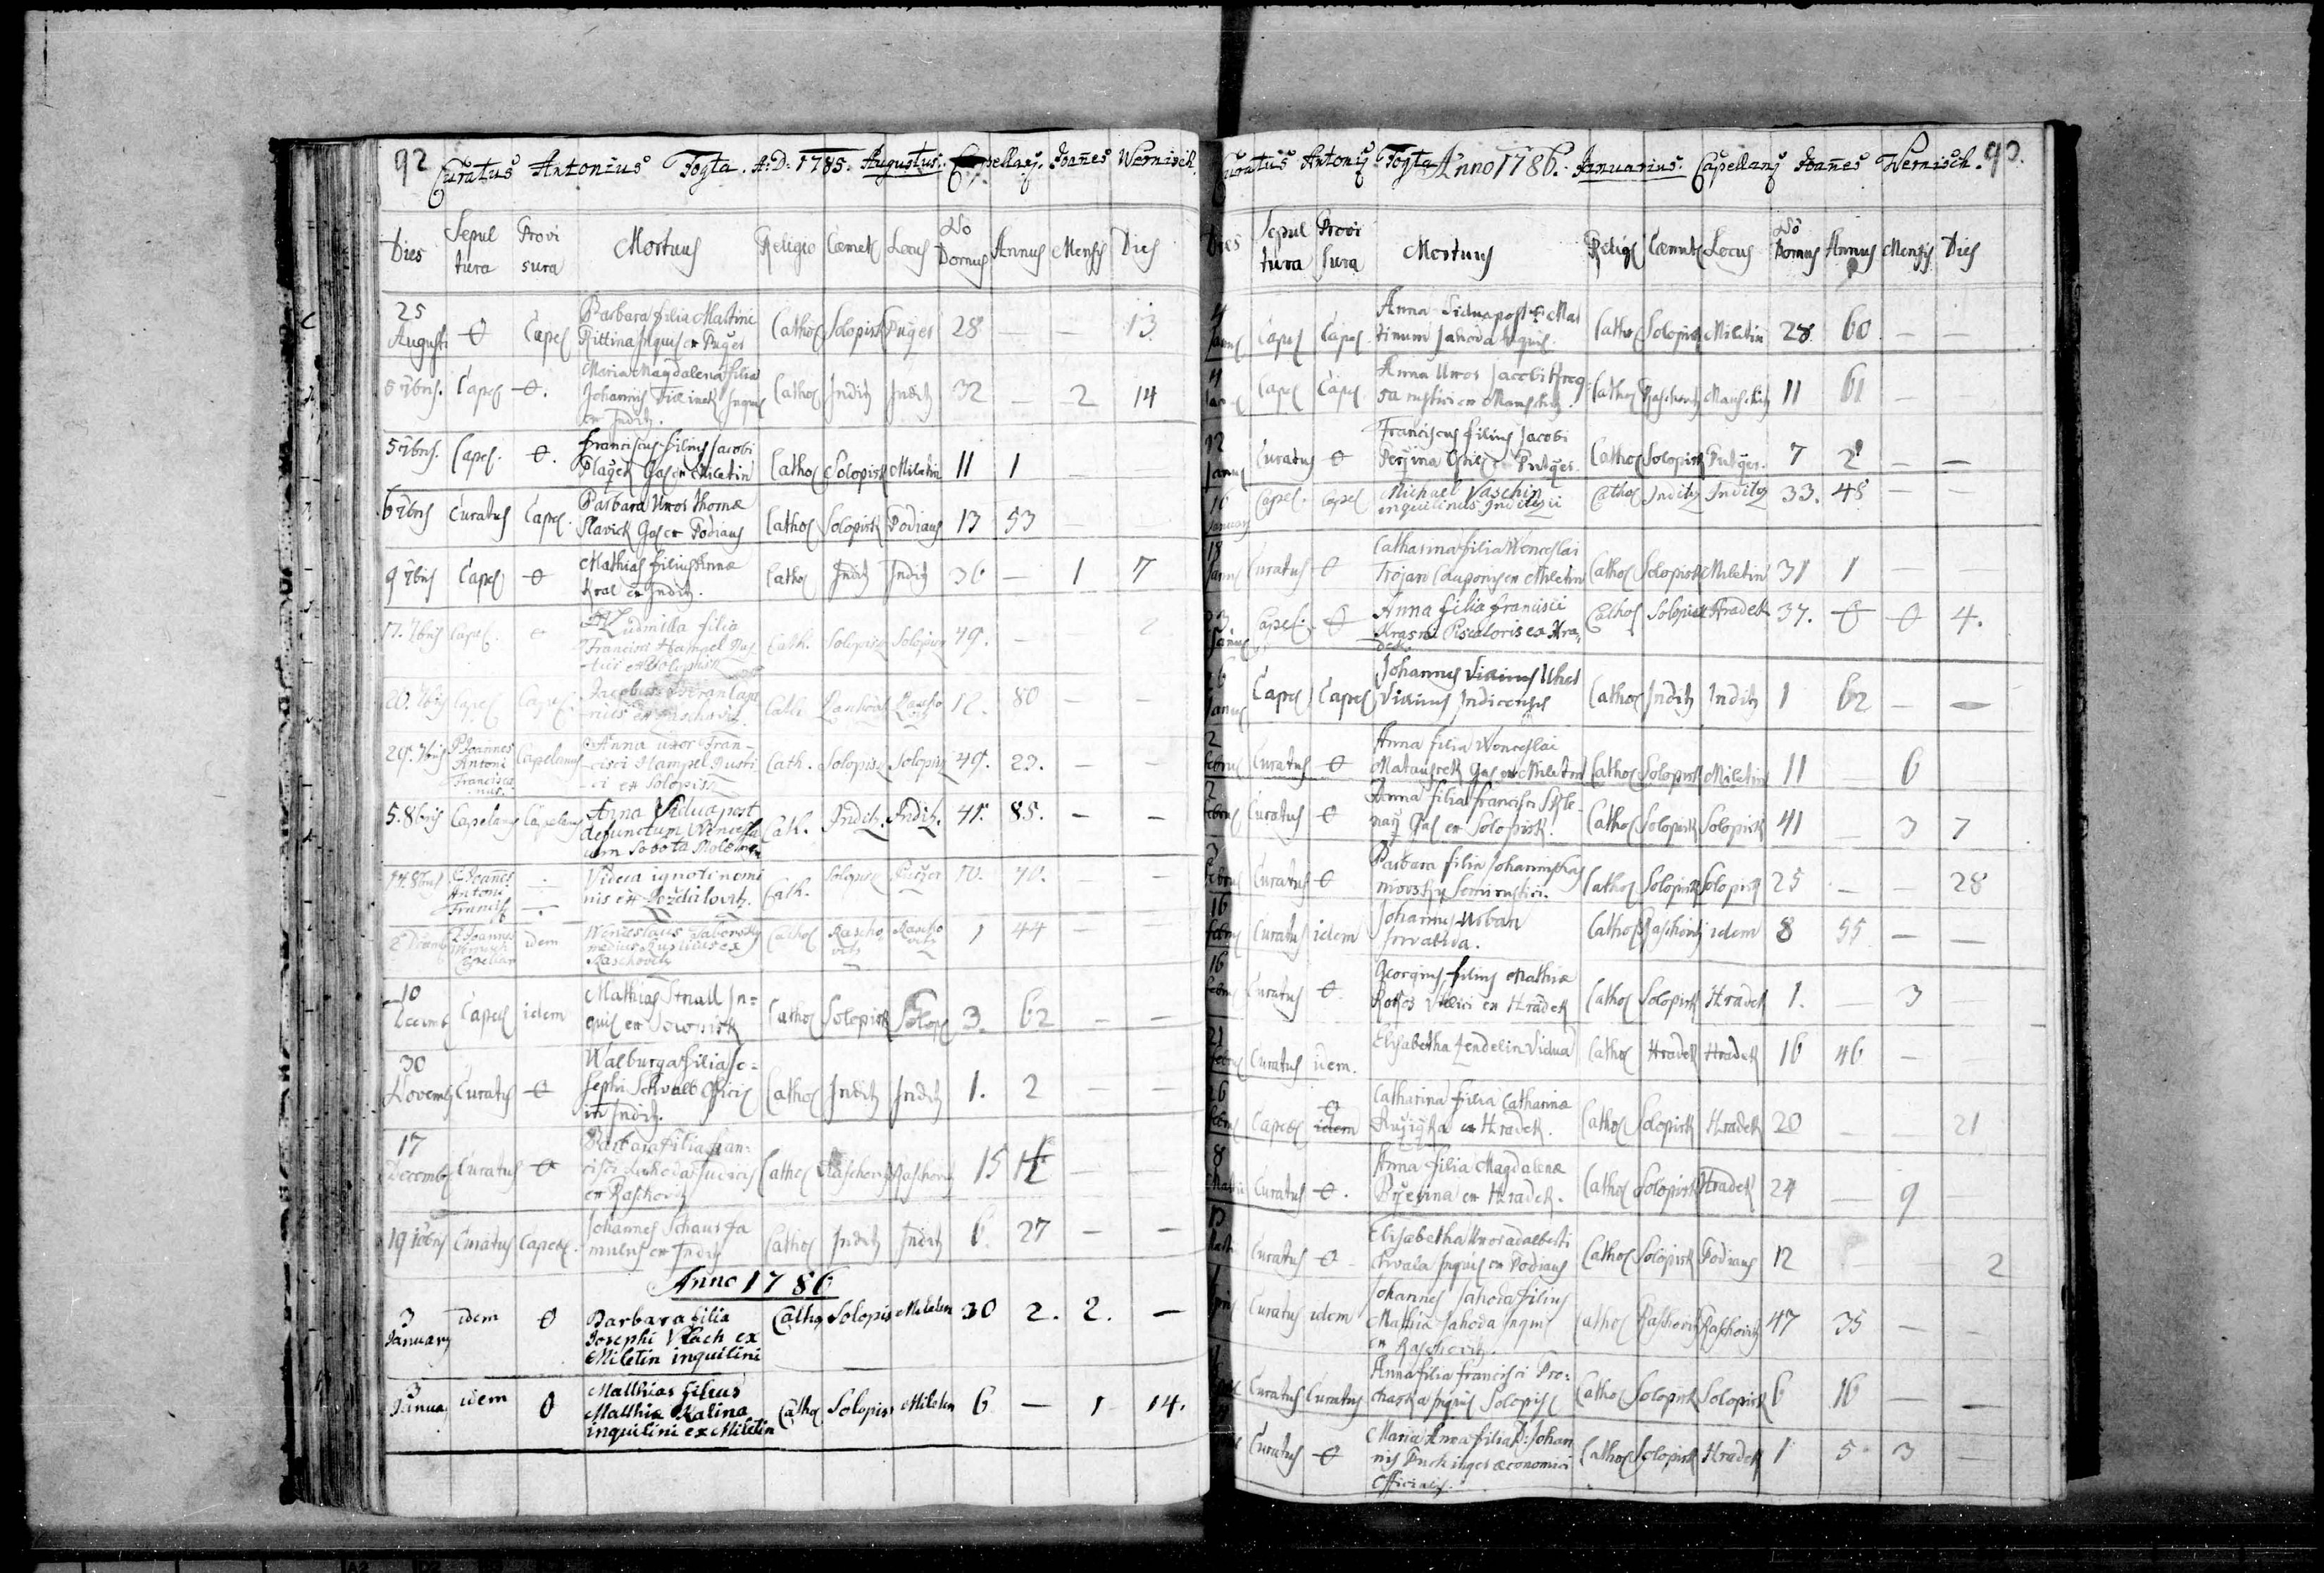 92 Curatus Antonius Fogta. A: D: 1785. Augustus. Capellanq. Joanes Wernisch.
Dies Sepul tura Provi sura Mortuus Religio Cæmet Locus No Domus Annus Mensis Dies
25 Augusti O Capel Barbara filia Martini
Rittina Inquil ex Puges Cathol Solopisk Puges 28 — — 13.
5 7bris. Capel O. Maria Magdalena filia
Johannis Inquil
ex Inditz. Cathol Inditz Inditz 32 — 2 14
5 7bris. Capel. O. Franciscus filius Jacobi
Playek Gas ex Miletin Cathol Solopisk Miletin 11 1 — —
6 7bris Curatus Capel. Barbara Uxor Thomæ
Slavick Gas ex Podians Cathol Solopisk Podians 13 53
9 7bris Capel O Mathias filius Annæ
Kral ex Inditz. Cathol Inditz Inditz 36 — 1 7
17. 7bris Capel. O Ludmilla filia
Francisci Hampel Rus
tici ex Solopisk Cath. Solopisk Solopisk 49. — 2
20. 7bris Capel Capel. Jacobus
Cath. 12. 80 — —
29. 7bris P Joannes
Antoni
Francisca
nus. Capelanus Anna uxor Fran-
cisci Hampel Rusti
ci ex Solopisk Cath. Solopisk Solopisk 49. 23. — —
5. 8bris Capelanus Capelanus Anna Vidua post
defunctum Wencesla
um Sobota Cath. Inditz. Inditz. 41. 85. — —
14. 8bris P Joanes
Antoni
Francis Vidua ignoti nomi
nis ex Cath. Solopisk 10. 70. — —
P Joannes
Wernisch
Capellan idem Wenceslaus Taborsky
medius Rusticus ex
Raschovitz Cathol Rascho
vitz Rascho
vitz 1 44 — —
10
Decemb Capel idem Mathias Strnall In=
quil ex Solopisk Cathol Solopisk Solopi 3. 62 — —
30
Novemb Curatus O Walburga filia Jo=
sephi Schwalb Officis
in Inditz. Cathol Inditz Inditz 1. 2 — —
17
Decemb Curatus O Barbara filia Fran:
cisci Judicis
ex Raschovitz Cathol Raschovitz Raschovitz 15 — —
19 10bris Curatus Capel. Johannes Schaus fa
mulus ex Inditz Cathol Inditz Inditz 6. 27 — —
Anno 1786
3
January idem O Barbara filia
Josephi Vlach ex
Miletin inquilini Cathol Solopis Miletin 30 2. 2. —
3
Janua idem O Matthias filius
Matthiæ Kalina
inquilini ex Miletin Cathol Solopis Miletin 6 — 1 14.
Curatus Antoniq Fogta Anno 1786. Januarius. Capellanq Joanes Wernisch. 93.
Dies Sepul tura Provi sura Mortuus Religio Cæmet Locus No Domus Annus Mensis Dies
4 Capel Capel. Anna Vidua post + Mar
tinum Jahoda Inquil. Cathol Solopisk Miletin 28 60 — —
4 Capel Capel. Anna Uxor Jacobi
rustici ex Cathol 11 61 —
12 Curatus O Franciscus filius Jacobi
Peryina ex Putges. Cathol Solopisk Putges. 7 2 — —
16
January Capel. Capel Michael Vaschin
inquilinus Inditzii Cathol Inditz Inditz 33. 48 — —
18 Curatus O Catharina filia Wenceslai
Trojan Cauponis ex Miletin Cathol Solopisk Miletin 31 1 — —
Capel. O Anna filia Francisci
Krasni Piscatoris ex Hra
dek. Cathol Solopisk Hradek 37. O O 4.
Capel Capel Johannes
Indicensis Cathol Inditz Inditz 1 62 — —
2 Curatus O Anna filia Wenceslai
Matauschek Gas ex Miletin Cathol Solopisk Miletin 11 6
2 Curatus O Anna filia Francisci Skle
nay Gas ex Solopisk. Cathol Solopisk Solopisk 41 — 3 7
Curatus O Barbara filia Johannis
Semirustici. Cathol Solopisk Solopisk 25 — — 28
16 Curatus idem Johannes Urban
Invalida. Cathol Raschovitz idem 8 55 — —
16 Curatus O. Georgius filius Mathiæ
Kokes Villici ex Hradek Cathol Solopisk Hradek 1. — 3
21 Curatus idem. Elisabetha Jendelin Vidua Cathol Hradek Hradek 16 46 —
26 Capel O
idem Catharina filia Catharinæ
Ruzizka ex Hradek. Cathol Solopisk Hradek 20 — — 21
8 Curatus O. Anna filia Magdalenæ
Brzezina ex Hradek. Cathol Solopisk Hradek 24 — 9
Curatus O Elisabetha Uxor Adalberti
Chvala Inquil ex Podians Cathol Solopisk Podians 12 — 2
Curatus idem Johannes Jahoda filius
Mathiæ Jahoda Inquil
ex Raschovitz. Cathol Raschovitz Raschovitz 47 35 — —
Curatus Curatus Anna filia Francisci Pro:
chaska Inquil Solopisk Cathol Solopisk Solopisk 6 16 — —
Curatus O Maria Anna filia D: Johan
nis Puchinger œconomici
Officialis. Cathol Solopisk Hradek 1 5 3 —